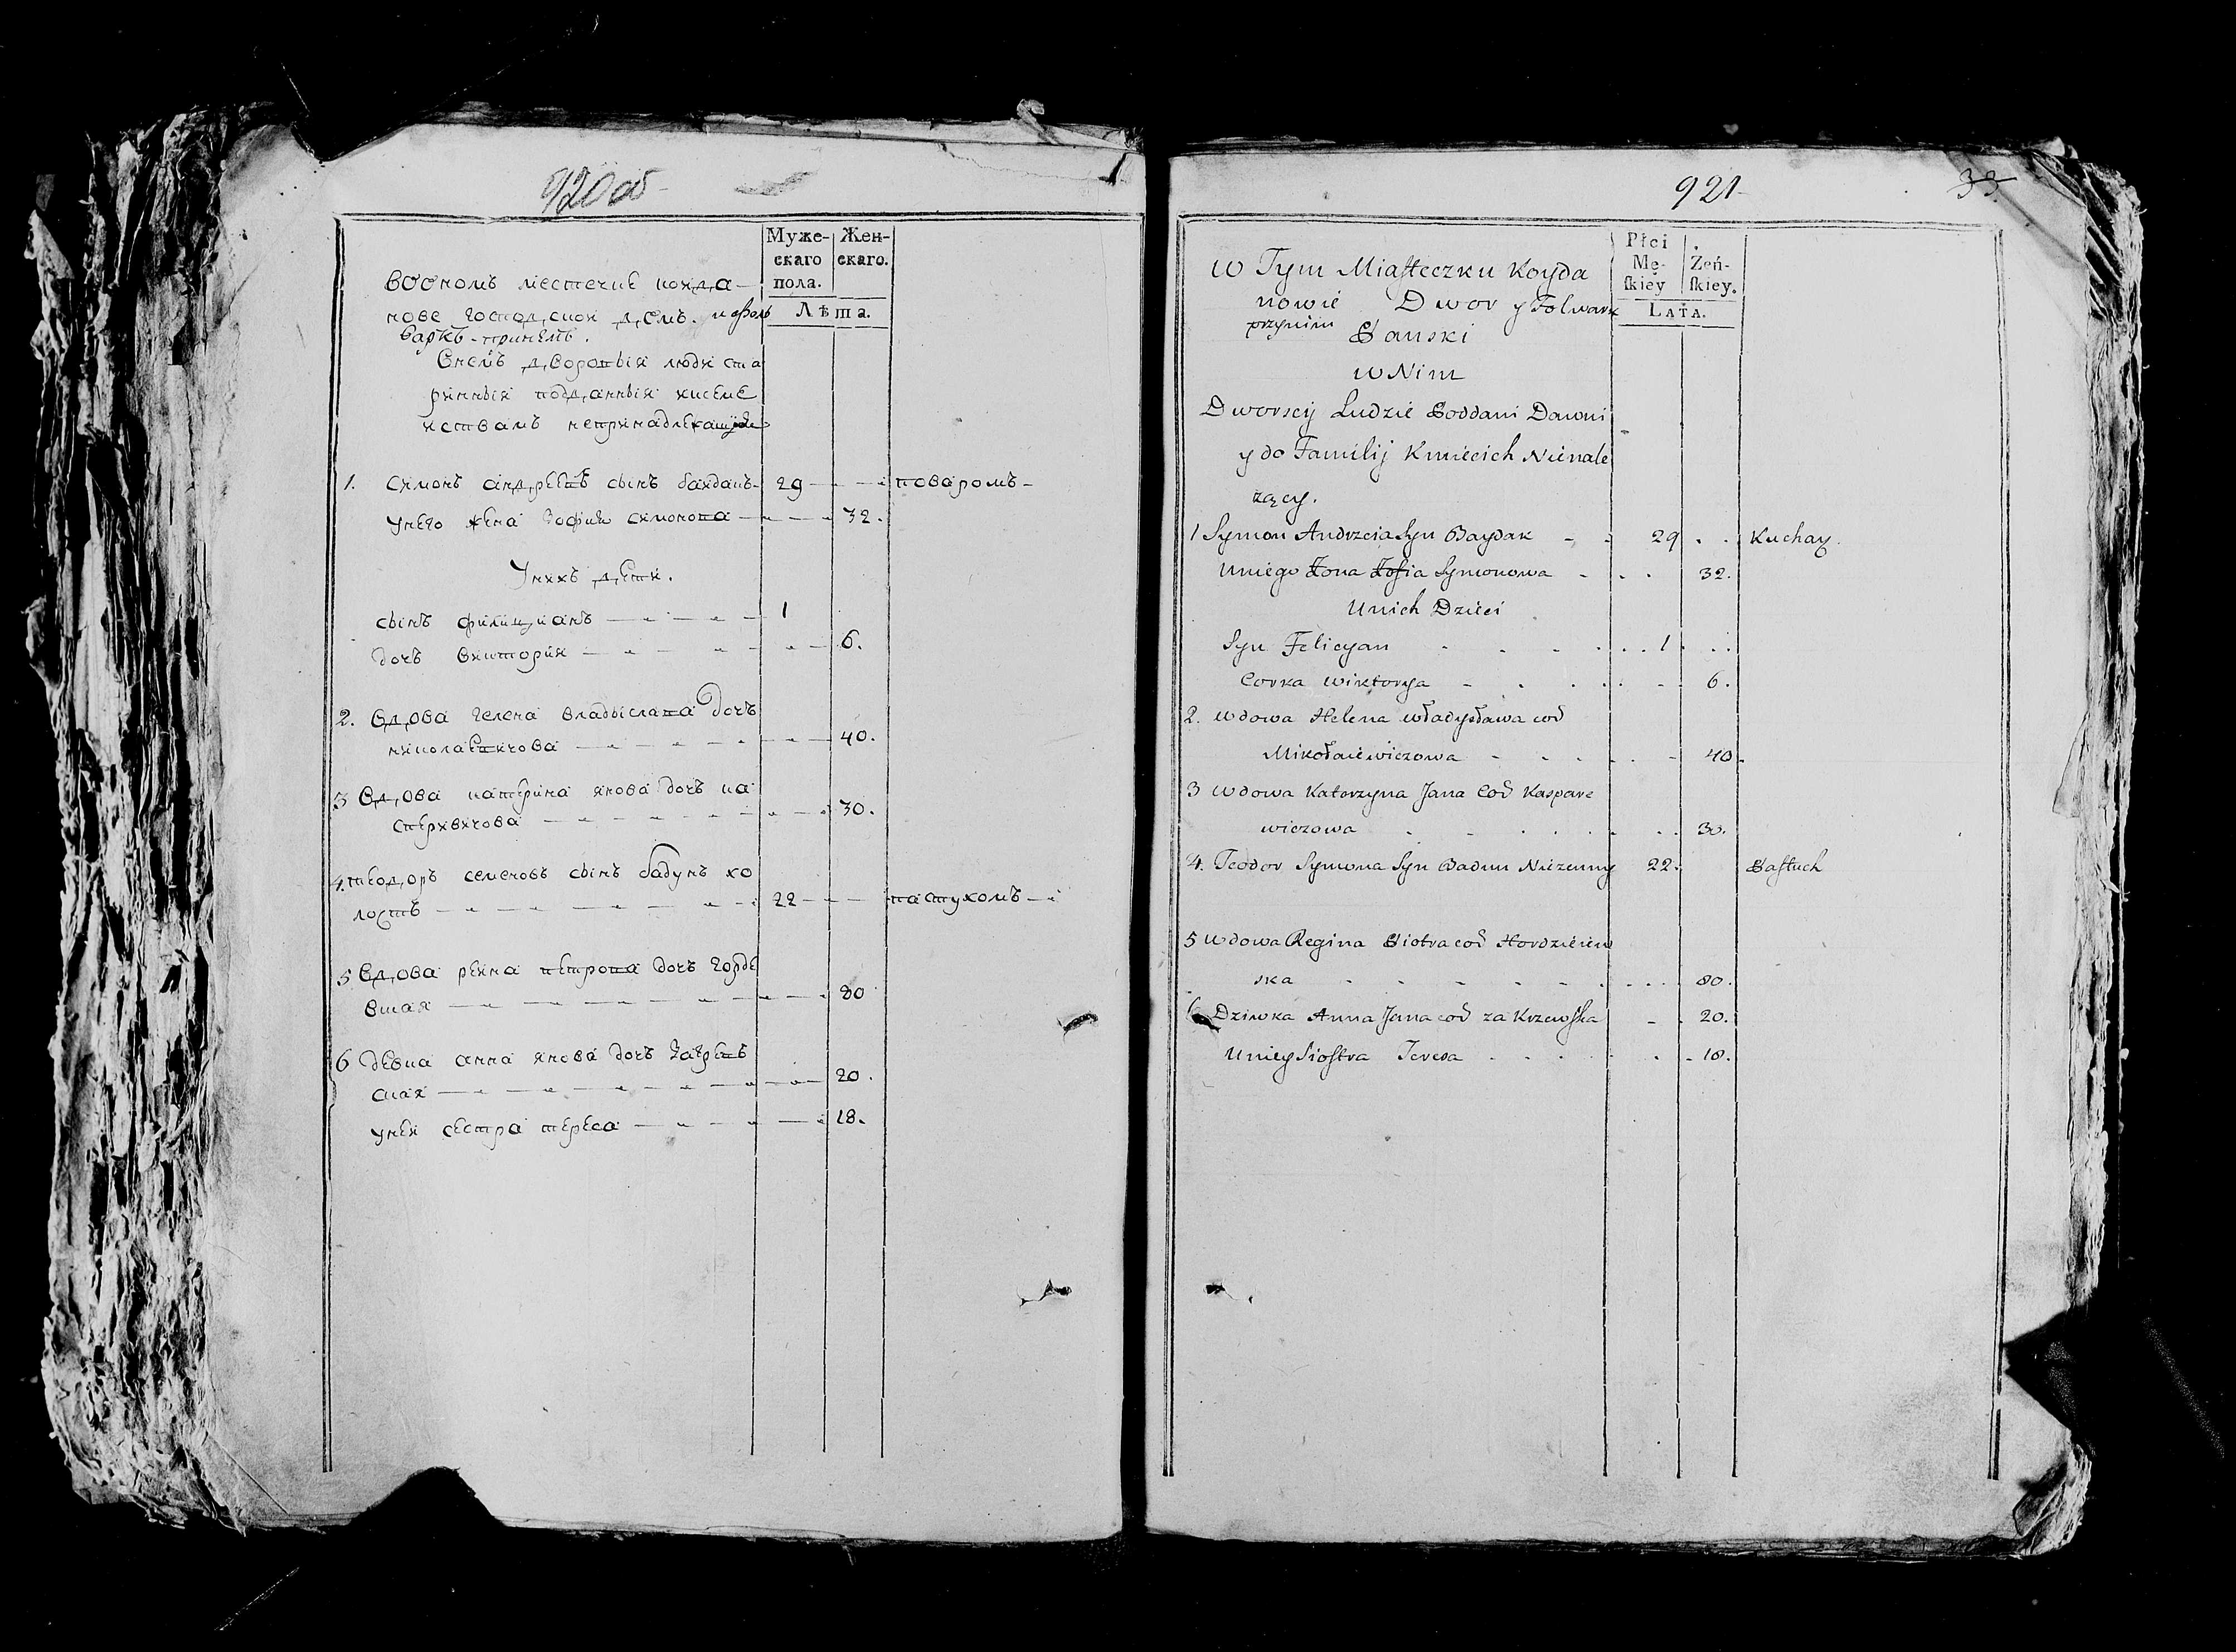 920 об
Муже- Жен-
скаго скаго.
пола.
Лѣта.
мѣстечке койда-
нове господской домъ. и фоль
варкъ принемъ.
Внемъ дворовыя люди ста
ринныя подданныя
непринадлежащия
1. Симонъ андреевъ сынъ байдакъ - 29 - - поваромъ -
унего жена Зофия симонова - - - 32.
Унихъ дети.
сынъ филициянъ - - - - 1
дочь виктория - - - - - 6.
2. Вдова гелена владыслава дочь
миколаевичова - - - - - 40.
3 Вдова катерина янова дочь ка
сперивичова - - - - - 30.
4. теодоръ семеновъ сынъ бадунъ хо
лостъ - - - - - 22 - - пастухомъ -
5 Вдова реина петрова дочь горде
вская - - - - - 80
6 девка анна янова дочь Закрев
ская - - - - - 20.
уней сестра тереса - - - - 18.
921 33
Płci
Mę- Żeń-
ſkiey ſkiey.
LATA.
w Tym Miaſteczku Koyda
nowie Dwor y Folwark
przynim Panski
w Nim
Dworscy Ludzie Poddani Dawni
y do Familij Kmiecich Nienale
zący.
1 Symon Andrzeia Syn Baydak - - 29 . . Kuchaz.
Uniego Zona Zofia Symonowa - . . 32.
Unich Dzieci
Syn Felicyan - - - . . 1 . .
Corka Wiktorya - . . . - - 6.
2. Wdowa Helena Władysława cod
Mikołaiewiczowa - - - . - 40.
3 Wdowa Katarzyna Jana Cod Kaspare
wiczowa . - . . . . 30.
4. Teodor Symona Syn Badun Niezenny 22. Paſtuch
5 Wdowa Regina Piotra cod Hordzieiew
ska - - - - - . . . 80.
6 Dziwka Anna Jana cod za Krzewſka - . 20.
Uniey Sioſtra Teresa . . . . . - 18.